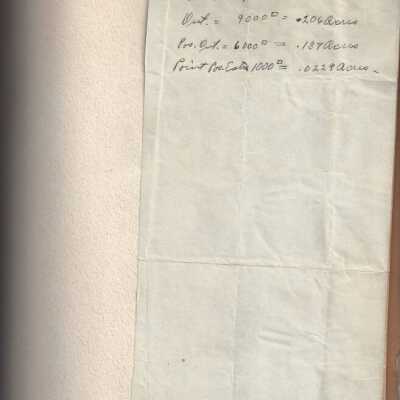 Out. = 9000□ = .206 Acres
Pos. Out. = 6000□ = .137 Acres
Point Pos. 1000□ = .0229 Acres.